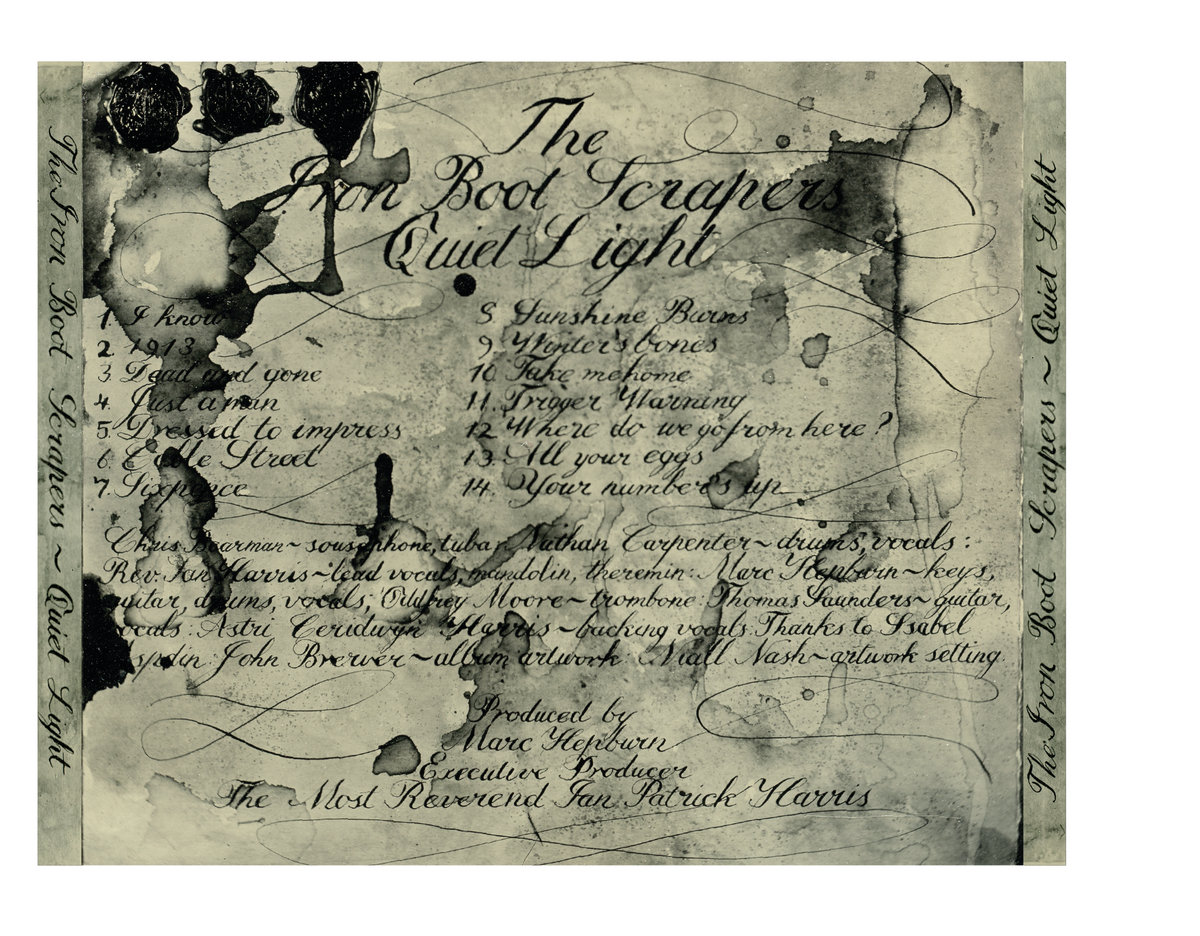 The Iron Boot Scrapers ~ Quiet Light
The
Iron Boot Scrapers
Quiet Light
1. I know
2. 1913
3. Dead and gone
4. Just a man
5. Dressed to impress
6. Street
7. Sixpence
8. Sunshine Burns
9. Winter's bones
10. Take me home
11. Trigger Warning
12. Where do we go from here?
13. All your eggs
14. Your number's up
Chris Boarman ~ sousaphone, tuba: Nathan Carpenter ~ drums, vocals:
Rev. Ian Harris ~ lead vocals, mandolin, theremin: Marc Hepburn ~ keys,
guitar, drums, vocals; Moore ~ trombone: Thomas Saunders ~ guitar,
vocals: Astri Ceridwyn Harris ~ backing vocals: Thanks to Isabel
John Brewer ~ album artwork: Niall Nash ~ artwork setting
Produced by
Marc Hepburn
Executive Producer
The Most Reverend Ian Patrick Harris
The Iron Boot Scrapers ~ Quiet Light